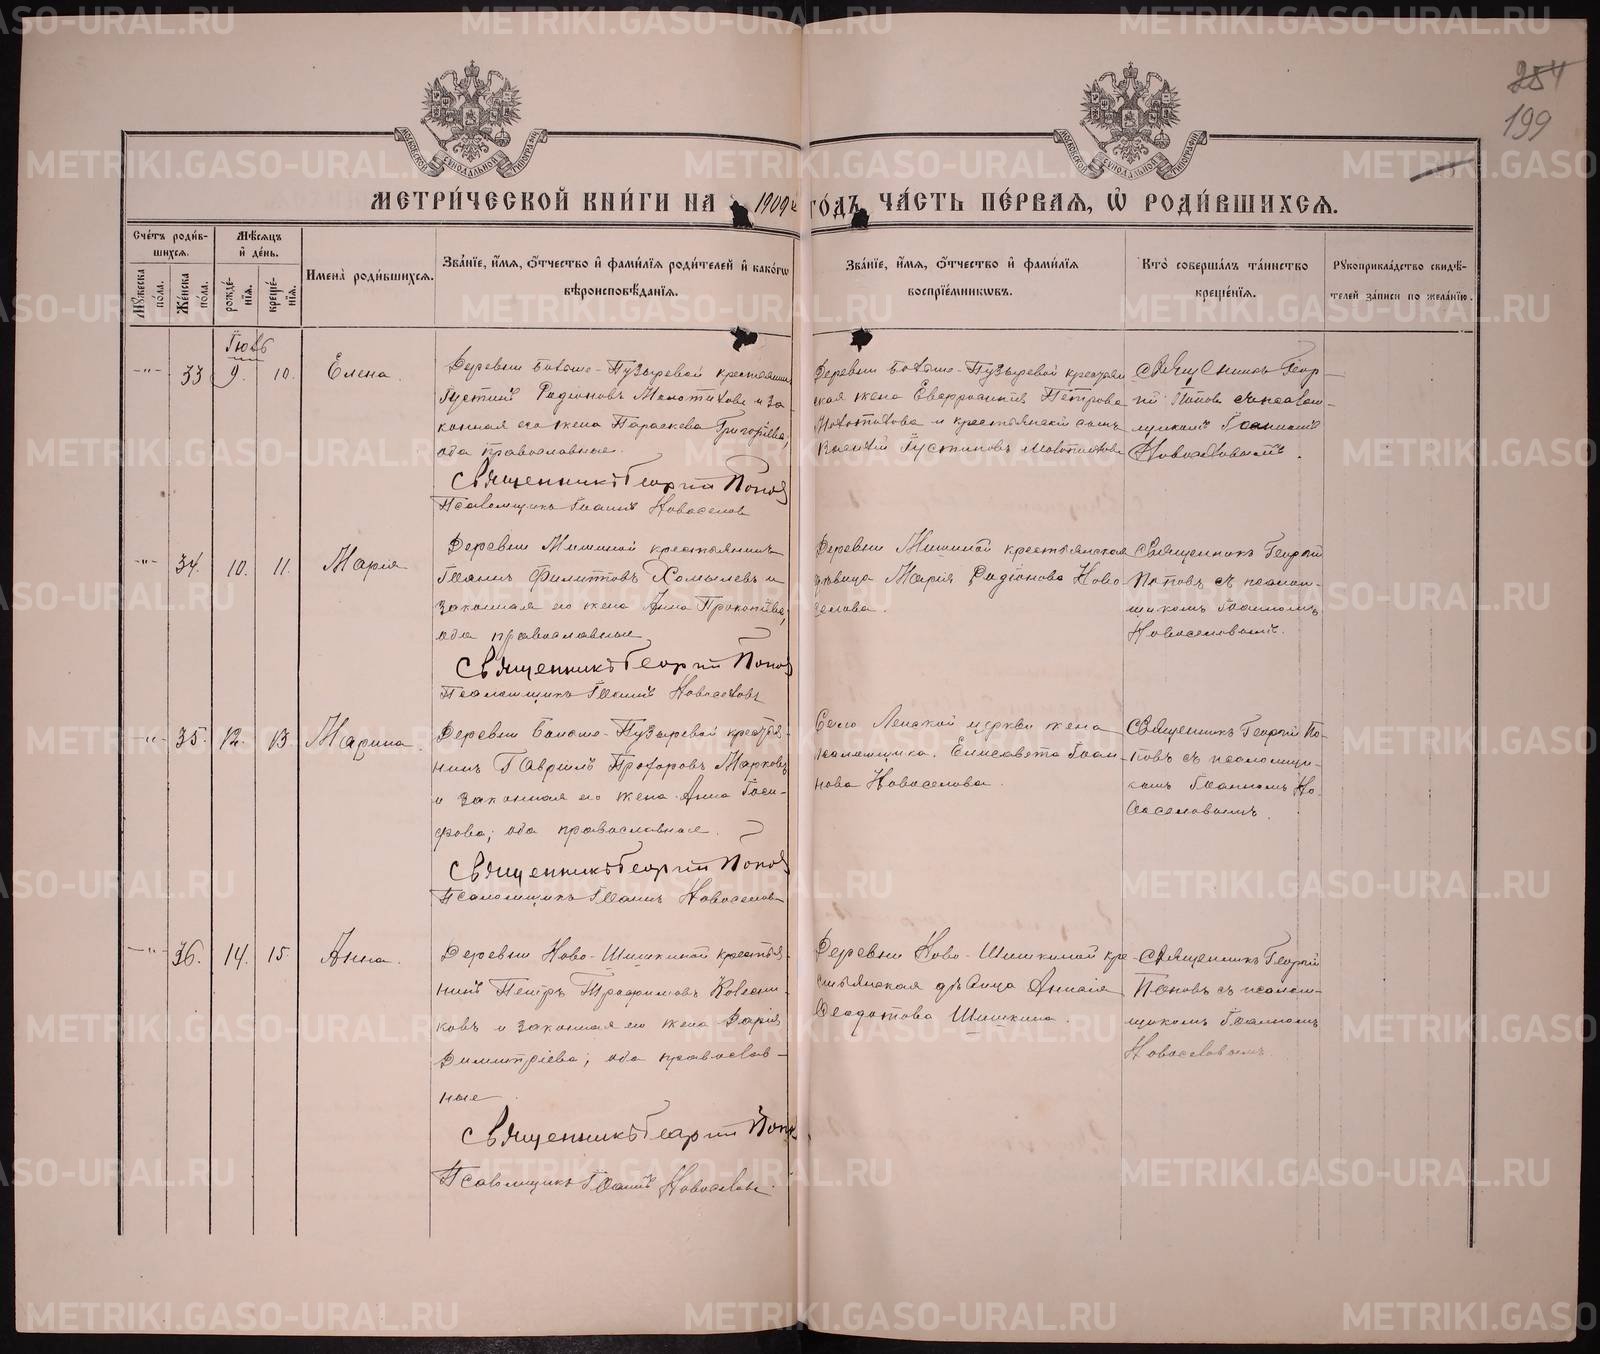 254
199
МЕТРИ́ЧЕСКОЙ КНИ́ГИ НА 1909 ГО́ДЪ, ЧА́СТЬ ПЕ́РВАЯ, Ѡ РОДИ́ВШИХСЯ.
Сче́тъ роди́в-
шихся.
Мꙋжеска по́ла.
Же́нска по́ла.
Мѣ́сяцъ и де́нь.
рожде́-нїя.
креще́-нїя.
Имена̀ роди́вшихся.
Зва́нїе, и́мя, ѻ́тчество и фами́лїя роди́телей и како́гѡ
вѣроисповѣ́данїя.
Зва́нїе, и́мя, ѻ́тчество и фами́лїя
воспрїе́мникѡвъ.
Кто̀ соверша́лъ та́инство
креще́нїя.
Рꙋкоприкла́дство свидѣ́-
телей за́писи по жела́нїю.
33 9. 10. Елена.
Деревни Больше-Пузыревой
Родіоновъ и за-
конная его жена Параскева Григорьева,
оба православные.
Священникъ Георгій Поповъ
Псаломщикъ Іоаннъ Новоселов
Деревни Больше-Пузыревой крестьян-
ская жена Петрова
и крестьянскій сынъ
Священникъ Геор-
гій Поповъ съ псалом-
щикомъ Іоанномъ
Новоселовымъ.
34. 10. 11. Марія
Деревни Мишиной крестьянинъ
Іоаннъ Филипповъ Хомылевъ и
законная его жена Анна Прокопьева,
оба православные
Священникъ Георгій Поповъ
Псаломщикъ Іоаннъ Новоселовъ
Деревни Мишиной крестьянская
дѣвица Марія Родіонова Ново-
селова.
Священникъ Георгій
Поповъ съ псалом-
щикомъ Іоанномъ
Новоселовымъ.
35. 12. 13. Марина.
Деревни Больше-Пузыревой крестья-
нинъ Гавріилъ Прохоровъ Марковъ
и законная его жена Анна Іоси-
фова; оба православные.
Священникъ Георгій Поповъ
Псаломщикъ Іоаннъ Новоселовъ
Село Ленской церкви жена
псаломщика Елисавета Іоан-
нова Новоселова.
Священникъ Георгій По-
повъ съ псаломщи-
комъ Іоанномъ Но-
воселовымъ.
36. 14. 15. Анна.
Деревни Ново-Шишкиной крестья-
нинъ Петръ Трофимовъ Колесни-
ковъ и законная его жена Дарія
Димитріева; оба православ-
ные
Священникъ Георгій Поповъ
Псаломщикъ Іоаннъ Новоселовъ.
Деревни Ново-Шишкиной кре-
стьянская дѣвица Анисія
Ѳеодотова Шишкина.
Священникъ Георгій
Поповъ съ псалом-
щикомъ Іоанномъ
Новоселовымъ.
METRIKI.GASO-URAL.RU